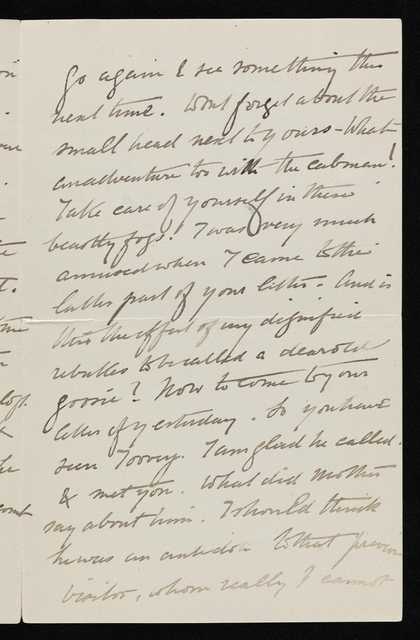 Go again & see something this
next time. Dont forget about the
small head next to yours - What
an adventure too with the cabman!
Take care of yourself in these
beastly fogs. I was very much
amused when I came to the
latter part of your letter. And is
this the effect of my dignified
rebukes to be called a dear old
goose? Now to come to your
letter of yesterday. So you have
seen Toovey. I am glad he called.
& met you. What did Mother
say about him. I should think
he was an antidote to that previous
visitor, whom really I cannot